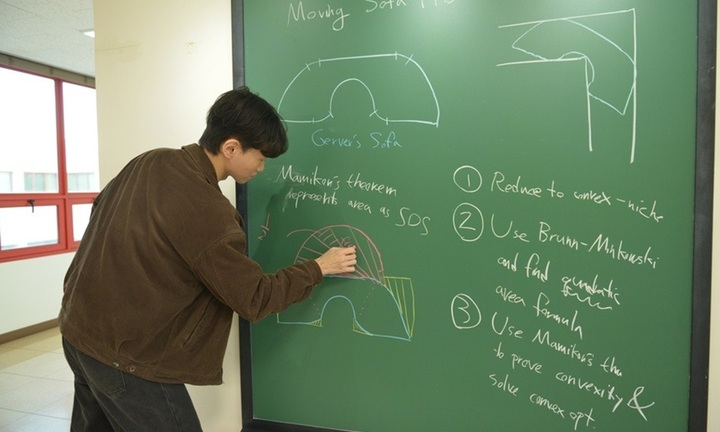 Moving Sofa
Gerver's Sofa
Mamikon's theorem
represents area as SOS
1/2
① Reduce to convex-niche
② Use Brunn-Minkowski
and find quadratic
area formula
③ Use Mamikon's thm
to prove convexity &
solve convex opt.